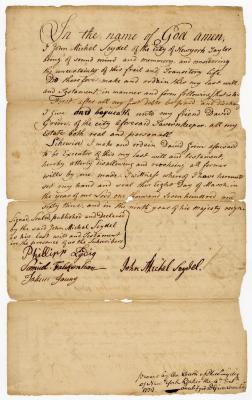 In the name of God amen,
I John Michel Seydel of the city of Newyork Taylor
being of sound mind and memory, and considering
the uncertainty of this frail and Transitory life
Do therefore make and ordain this my last will
and Testament, in manner and form following, that is
First after all my just debts be paid and
I give and bequeath unto my friend David
Grim, of the city aforesaid Tavernkeeper all my
estate both real and personall.
Likewise I make and ordain David Grim aforesaid
to be Executor of this my last will and testament,
hereby utterly disallowing and revoking all former
wills by me made. In witness whereof I have hereunto
set my hand and seal this Eight Day of March, in
the year of our Lord one thousand seven hundred and
Sixty nine, and in the ninth year of his majestys reign.
Signed, Sealed, published and Declared
by the said John Michel Seydel
as his last will and Testament
in the presence of us the Subscribers
Phillipp Lydig
Samuel
John Michel Seydel.
Young
proved by the Oath of Phillip Lydig
of New York Baker the